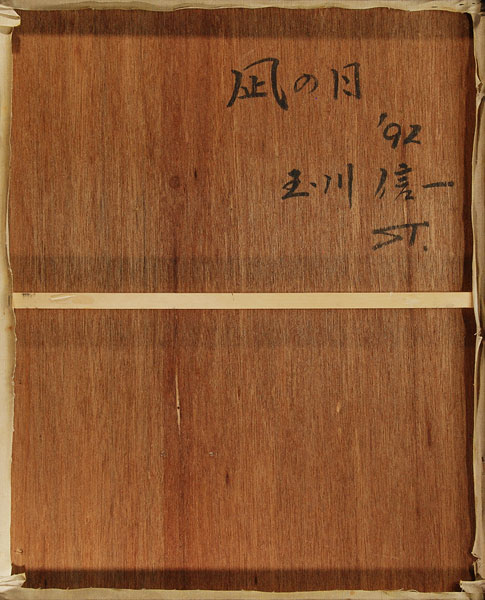 凪の日
'92
玉川信一
ST.